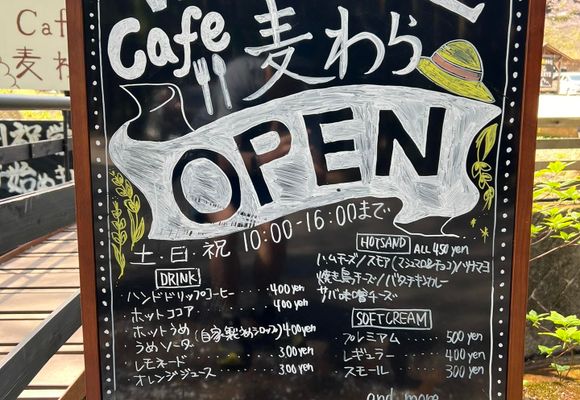 Cafe 麦わら
OPEN
土・日・祝 10:00-16:00まで
DRINK
ハンドドリップコーヒー ····· 400yen
ホットココア ····· 400yen
ホットうめ
うめソーダ (自家製うめシロップ) 400yen
レモネード ····· 300yen
オレンジジュース ····· 300yen
HOTSAND ALL 450yen
ハムチーズ/スモア(マシュマロ&チョコ)/ツナマヨ
焼き鳥チーズ/バタチキカレー
サバ味噌チーズ
SOFT CREAM
プレミアム ····· 500yen
レギュラー ····· 400yen
スモール ····· 300yen
and more
Caf
麦わ